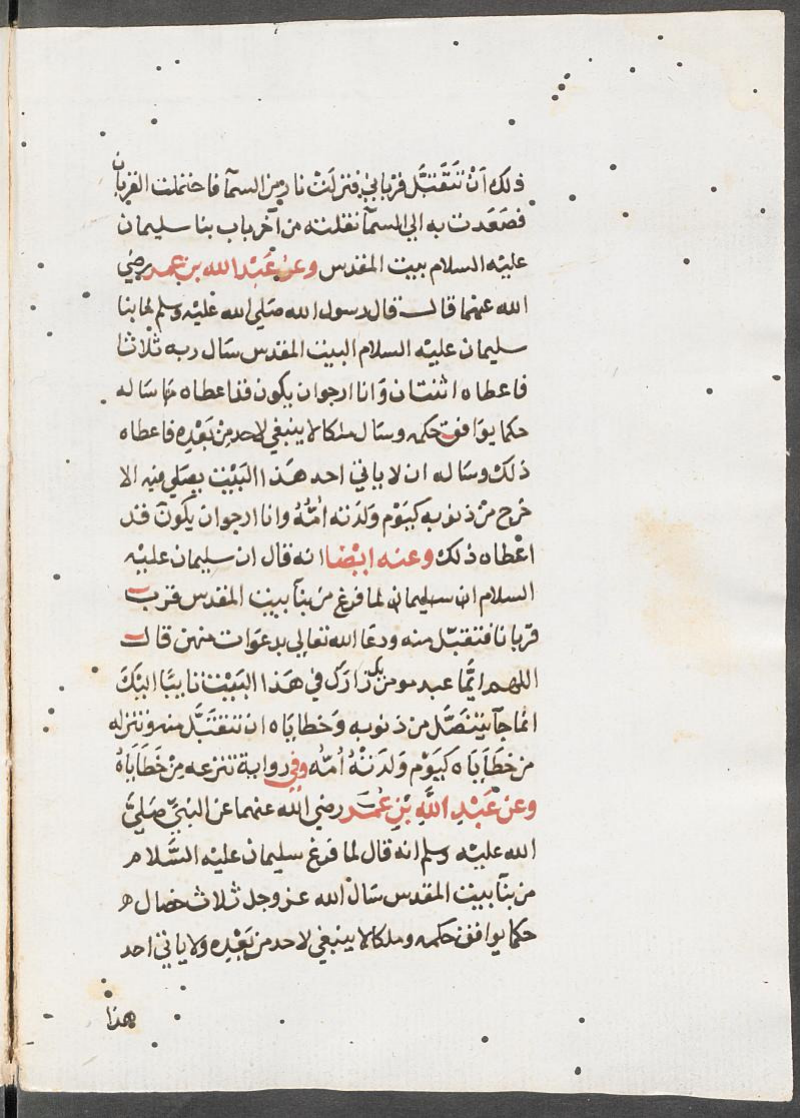 ذلك أن تتقبل قرباني فنزلت نار من السماء فاحتملت القربان
فصعدت به الى السماء نقلته من آخر باب بنا سليمان
عليه السلام بيت المقدس وعن عبد الله بن عمر رضي
الله عنهما قال قال رسول الله صلى الله عليه وسلم لما بنا
سليمان عليه السلام البيت المقدس سال ربه ثلاثا
فاعطاه اثنتان وانا ارجوا ان يكون قد اعطاه ما ساله
حكما يوافق حكمه وسال ملكا لا ينبغي لاحد من بعده فاعطاه
ذلك وساله ان لا ياتي احد هذا البيت يصلي فيه الا
خرج من ذنوبه كيوم ولدته امه وانا ارجوا ان يكون قد
اعطاه ذلك وعنه ايضا انه قال ان سليمان عليه
السلام ان سليمان لما فرغ من بنآ بيت المقدس قرب
قربانا فتقبل منه ودعا الله تعالى بدعوات منهن قال
اللهم ايما عبد مومن بك زارك في هذا البيت تايبا اليك
انما جآ يتنصل من ذنوبه وخطاياه ان تتقبل منه وتنزله
من خطاياه كيوم ولدته أمه وفي رواية تنزعه من خطاياه
وعن عبد الله بن عمر رضي الله عنهما عن النبي صلى
الله عليه وسلم انه قال لما فرغ سليمان عليه السلام
من بنآ بيت المقدس سال الله عز وجل ثلاث خصال
حكما يوافق حكمه وملكا لا ينبغي لاحد من بعده ولا ياتي احد
هذا